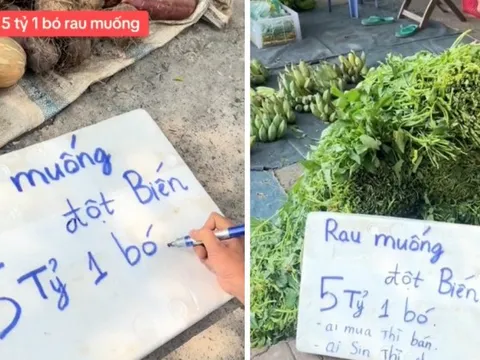 5 tỷ 1 bó rau muống
muống
đột Biến
5 Tỷ 1 bó
Rau muống
đột Biến
5 Tỷ 1 bó.
- ai mua thì bán.
- ai Sin Thì